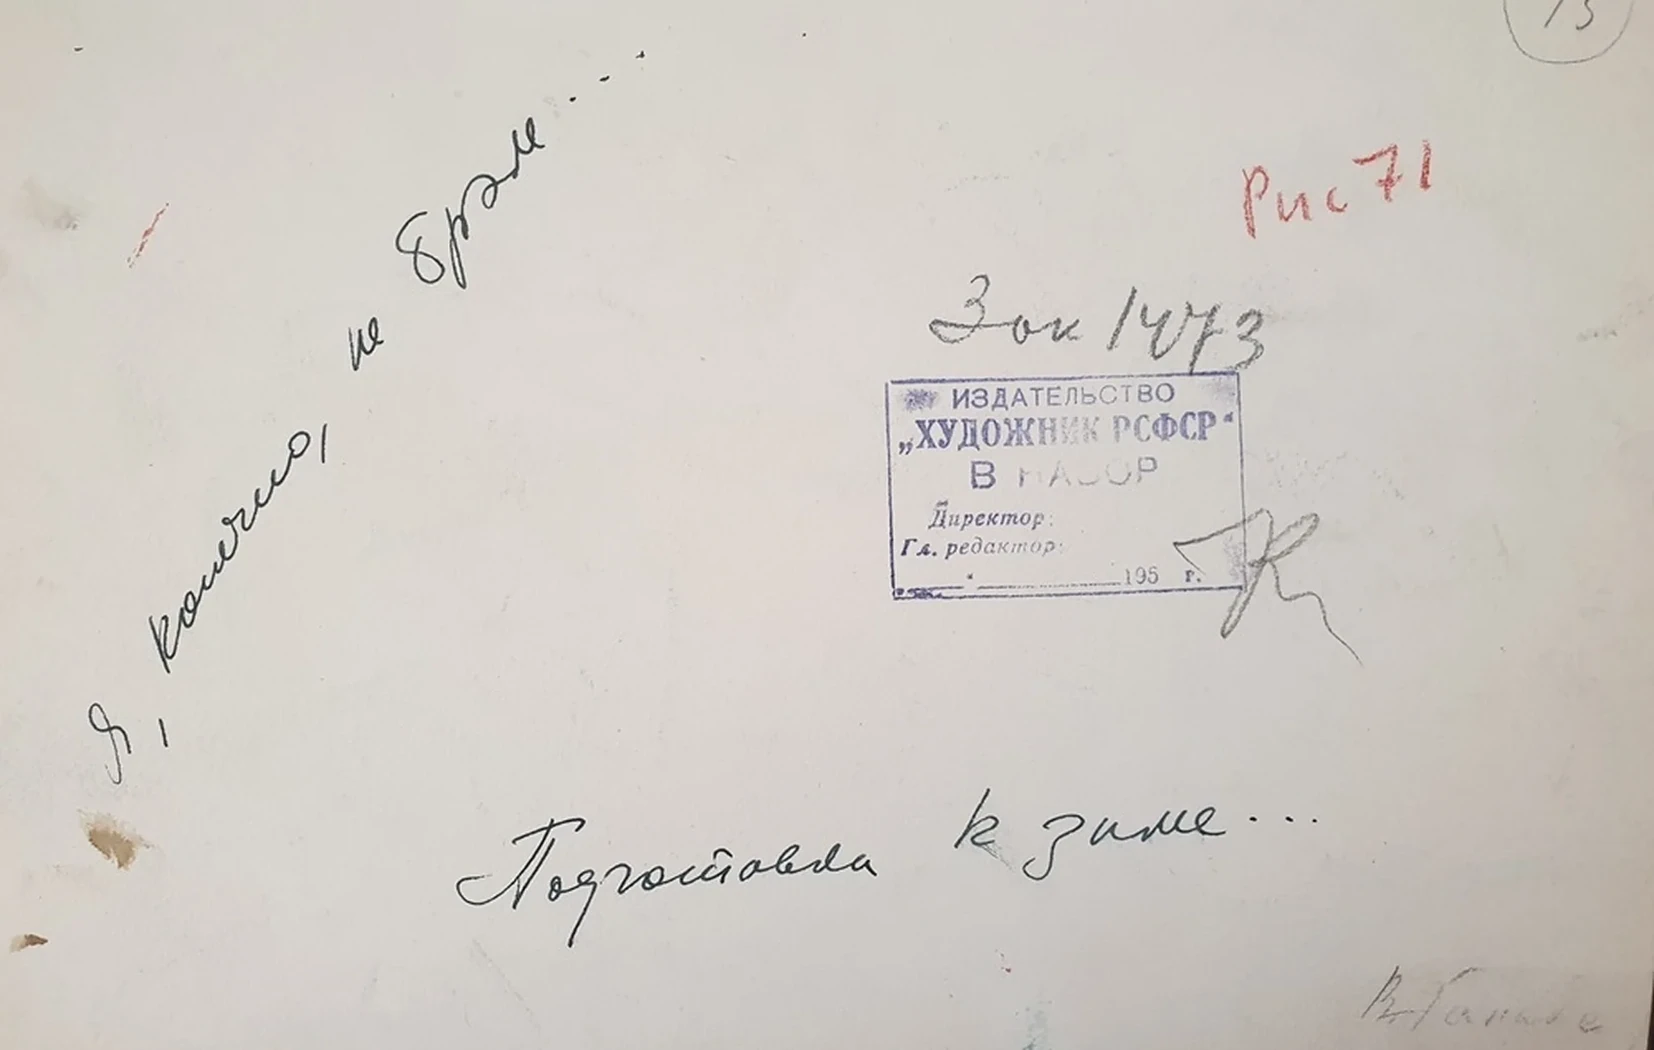 Рис 71
Зак 1473
ИЗДАТЕЛЬСТВО
„ХУДОЖНИК РСФСР“
В НАБОР
Директор:
Гл. редактор:
195 г.
Я, конечно, не Брэм...
Подготовка к зиме...